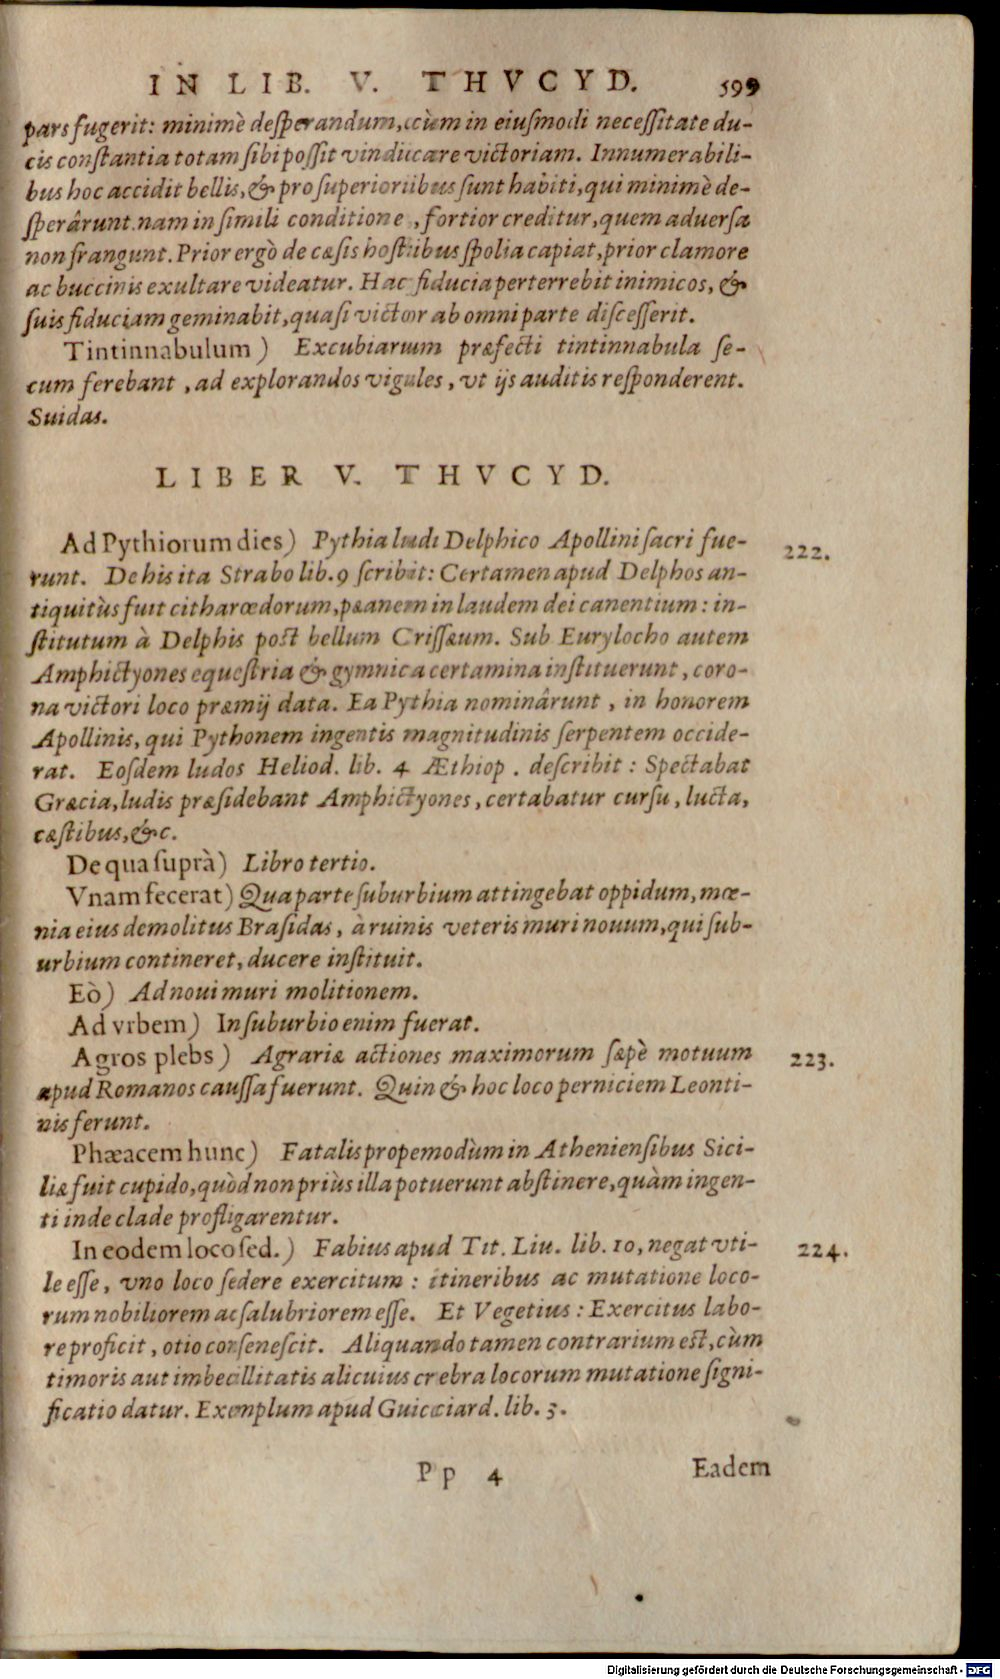 IN LIB. V. THVCYD. 599
pars fugerit: minimè deſperandum, cùm in eiuſmodi neceſſitate du-
cis conſtantia totam ſibi poſſit vindicare victoriam. Innumerabili-
bus hoc accidit bellis, & pro ſuperioribus ſunt habiti, qui minimè de-
ſperârunt. nam in ſimili conditione, fortior creditur, quem aduerſa
non frangunt. Prior ergò de cæſis hoſtibus ſpolia capiat, prior clamore
ac buccinis exultare videatur. Hac fiducia perterrebit inimicos, &
ſuis fiduciam geminabit, quaſi victor ab omni parte diſceſſerit.
Tintinnabulum) Excubiarum præfecti tintinnabula ſe-
cum ferebant, ad explorandos vigiles, vt ijs auditis reſponderent.
Suidas.
LIBER V. THVCYD.
Ad Pythiorum dies) Pythia ludi Delphico Apollini ſacri fue-
runt. De his ita Strabo lib. 9 ſcribit: Certamen apud Delphos an- 222.
tiquitùs fuit citharœdorum, pæanem in laudem dei canentium: in-
ſtitutum à Delphis poſt bellum Criſſæum. Sub Eurylocho autem
Amphictyones equeſtria & gymnica certamina inſtituerunt, coro-
na victori loco præmij data. Ea Pythia nominârunt, in honorem
Apollinis, qui Pythonem ingentis magnitudinis ſerpentem occide-
rat. Eoſdem ludos Heliod. lib. 4 Æthiop. deſcribit: Spectabat
Græcia, ludis præſidebant Amphictyones, certabatur curſu, lucta,
cæſtibus, &c.
De qua ſuprà) Libro tertio.
Vnam fecerat) Qua parte ſuburbium attingebat oppidum, mœ-
nia eius demolitus Braſidas, à ruinis veteris muri nouum, qui ſub-
urbium contineret, ducere inſtituit.
Eò) Ad noui muri molitionem.
Ad vrbem) In ſuburbio enim fuerat.
Agros plebs) Agrariæ actiones maximorum ſæpè motuum 223.
apud Romanos cauſſa fuerunt. Quin & hoc loco perniciem Leonti-
nis ferunt.
Phæacem hunc) Fatalis propemodùm in Athenienſibus Sici-
liæ fuit cupido, quòd non priùs illa potuerunt abſtinere, quàm ingen-
ti inde clade profligarentur.
In eodem loco ſed.) Fabius apud Tit. Liu. lib. 10, negat vti- 224.
le eſſe, vno loco ſedere exercitum: itineribus ac mutatione loco-
rum nobiliorem ac ſalubriorem eſſe. Et Vegetius: Exercitus labo-
re proficit, otio conſeneſcit. Aliquando tamen contrarium eſt, cùm
timoris aut imbecillitatis alicuius crebra locorum mutatione ſigni-
ficatio datur. Exemplum apud Guicciard. lib. 3.
Pp 4 Eadem
Digitalisierung gefördert durch die Deutsche Forschungsgemeinschaft - DFG